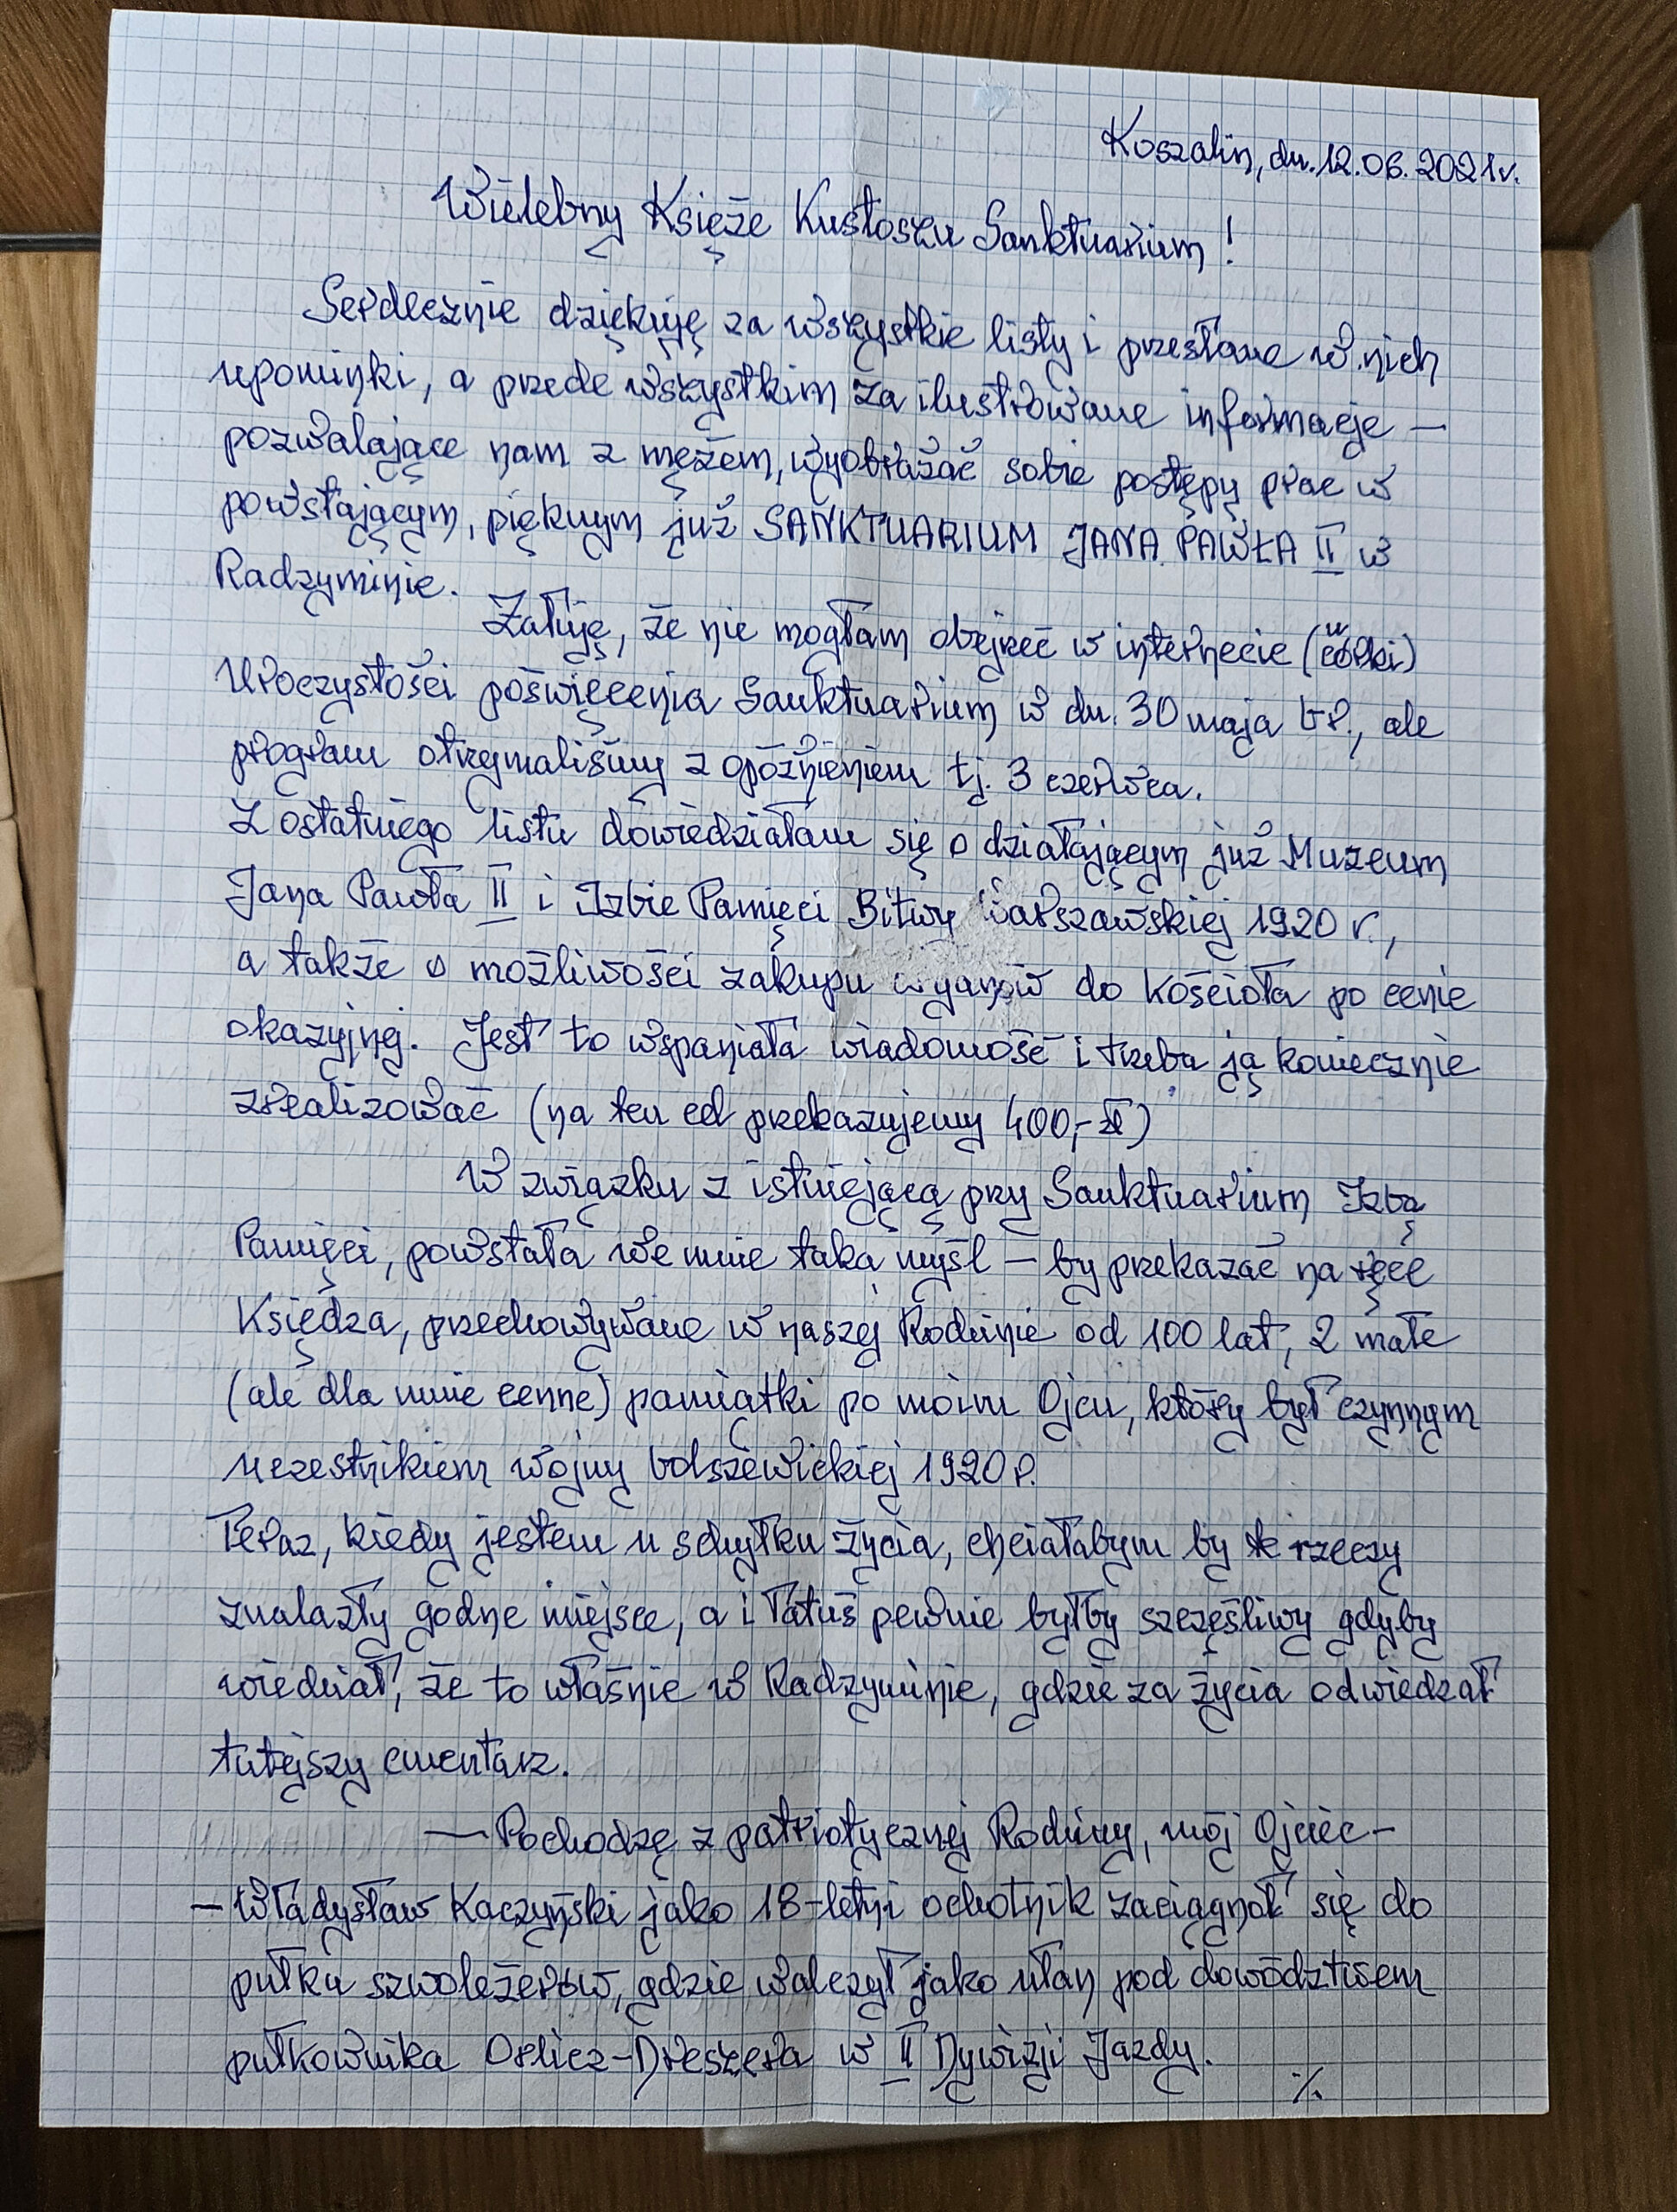 Koszalin, dn. 12.06.2021r.
Wielebny Księże Kustoszu Sanktuarium!
Serdecznie dziękuję za wszystkie listy i przesłane w nich
upominki, a przede wszystkim za ilustrowane informacje —
pozwalające nam z mężem, wyobrażać sobie postępy prac w
powstającym, pięknym już SANKTUARIUM JANA PAWŁA II w
Radzyminie.
Żałuję, że nie mogłam obejrzeć w internecie (u córki)
Uroczystości poświęcenia Sanktuarium w dn. 30 maja br., ale
program otrzymaliśmy z opóźnieniem tj. 3 czerwca.
Z ostatniego listu dowiedziałam się o działającym już Muzeum
Jana Pawła II i Izbie Pamięci Bitwy Warszawskiej 1920 r.,
a także o możliwości zakupu organów do kościoła po cenie
okazyjnej. Jest to wspaniała wiadomość i trzeba ją koniecznie
zrealizować (na ten cel przekazujemy 400,- zł)
W związku z istniejącą przy Sanktuarium Izbą
Pamięci, powstała we mnie taka myśl — by przekazać na ręce
Księdza, przechowywane w naszej Rodzinie od 100 lat, 2 małe
(ale dla mnie cenne) pamiątki po moim Ojcu, który był czynnym
uczestnikiem wojny bolszewickiej 1920 r.
Teraz, kiedy jestem u schyłku życia, chciałabym by te rzeczy
znalazły godne miejsce, a i Tatuś pewnie byłby szczęśliwy gdyby
wiedział, że to właśnie w Radzyminie, gdzie za życia odwiedzał
tutejszy cmentarz.
— Pochodzę z patriotycznej Rodziny, mój Ojciec -
- Władysław Kaczyński jako 18-letni ochotnik zaciągnął się do
pułku szwoleżerów, gdzie walczył jako ułan pod dowództwem
pułkownika Orlicz-Dreszera w II Dywizji Jazdy.
./.